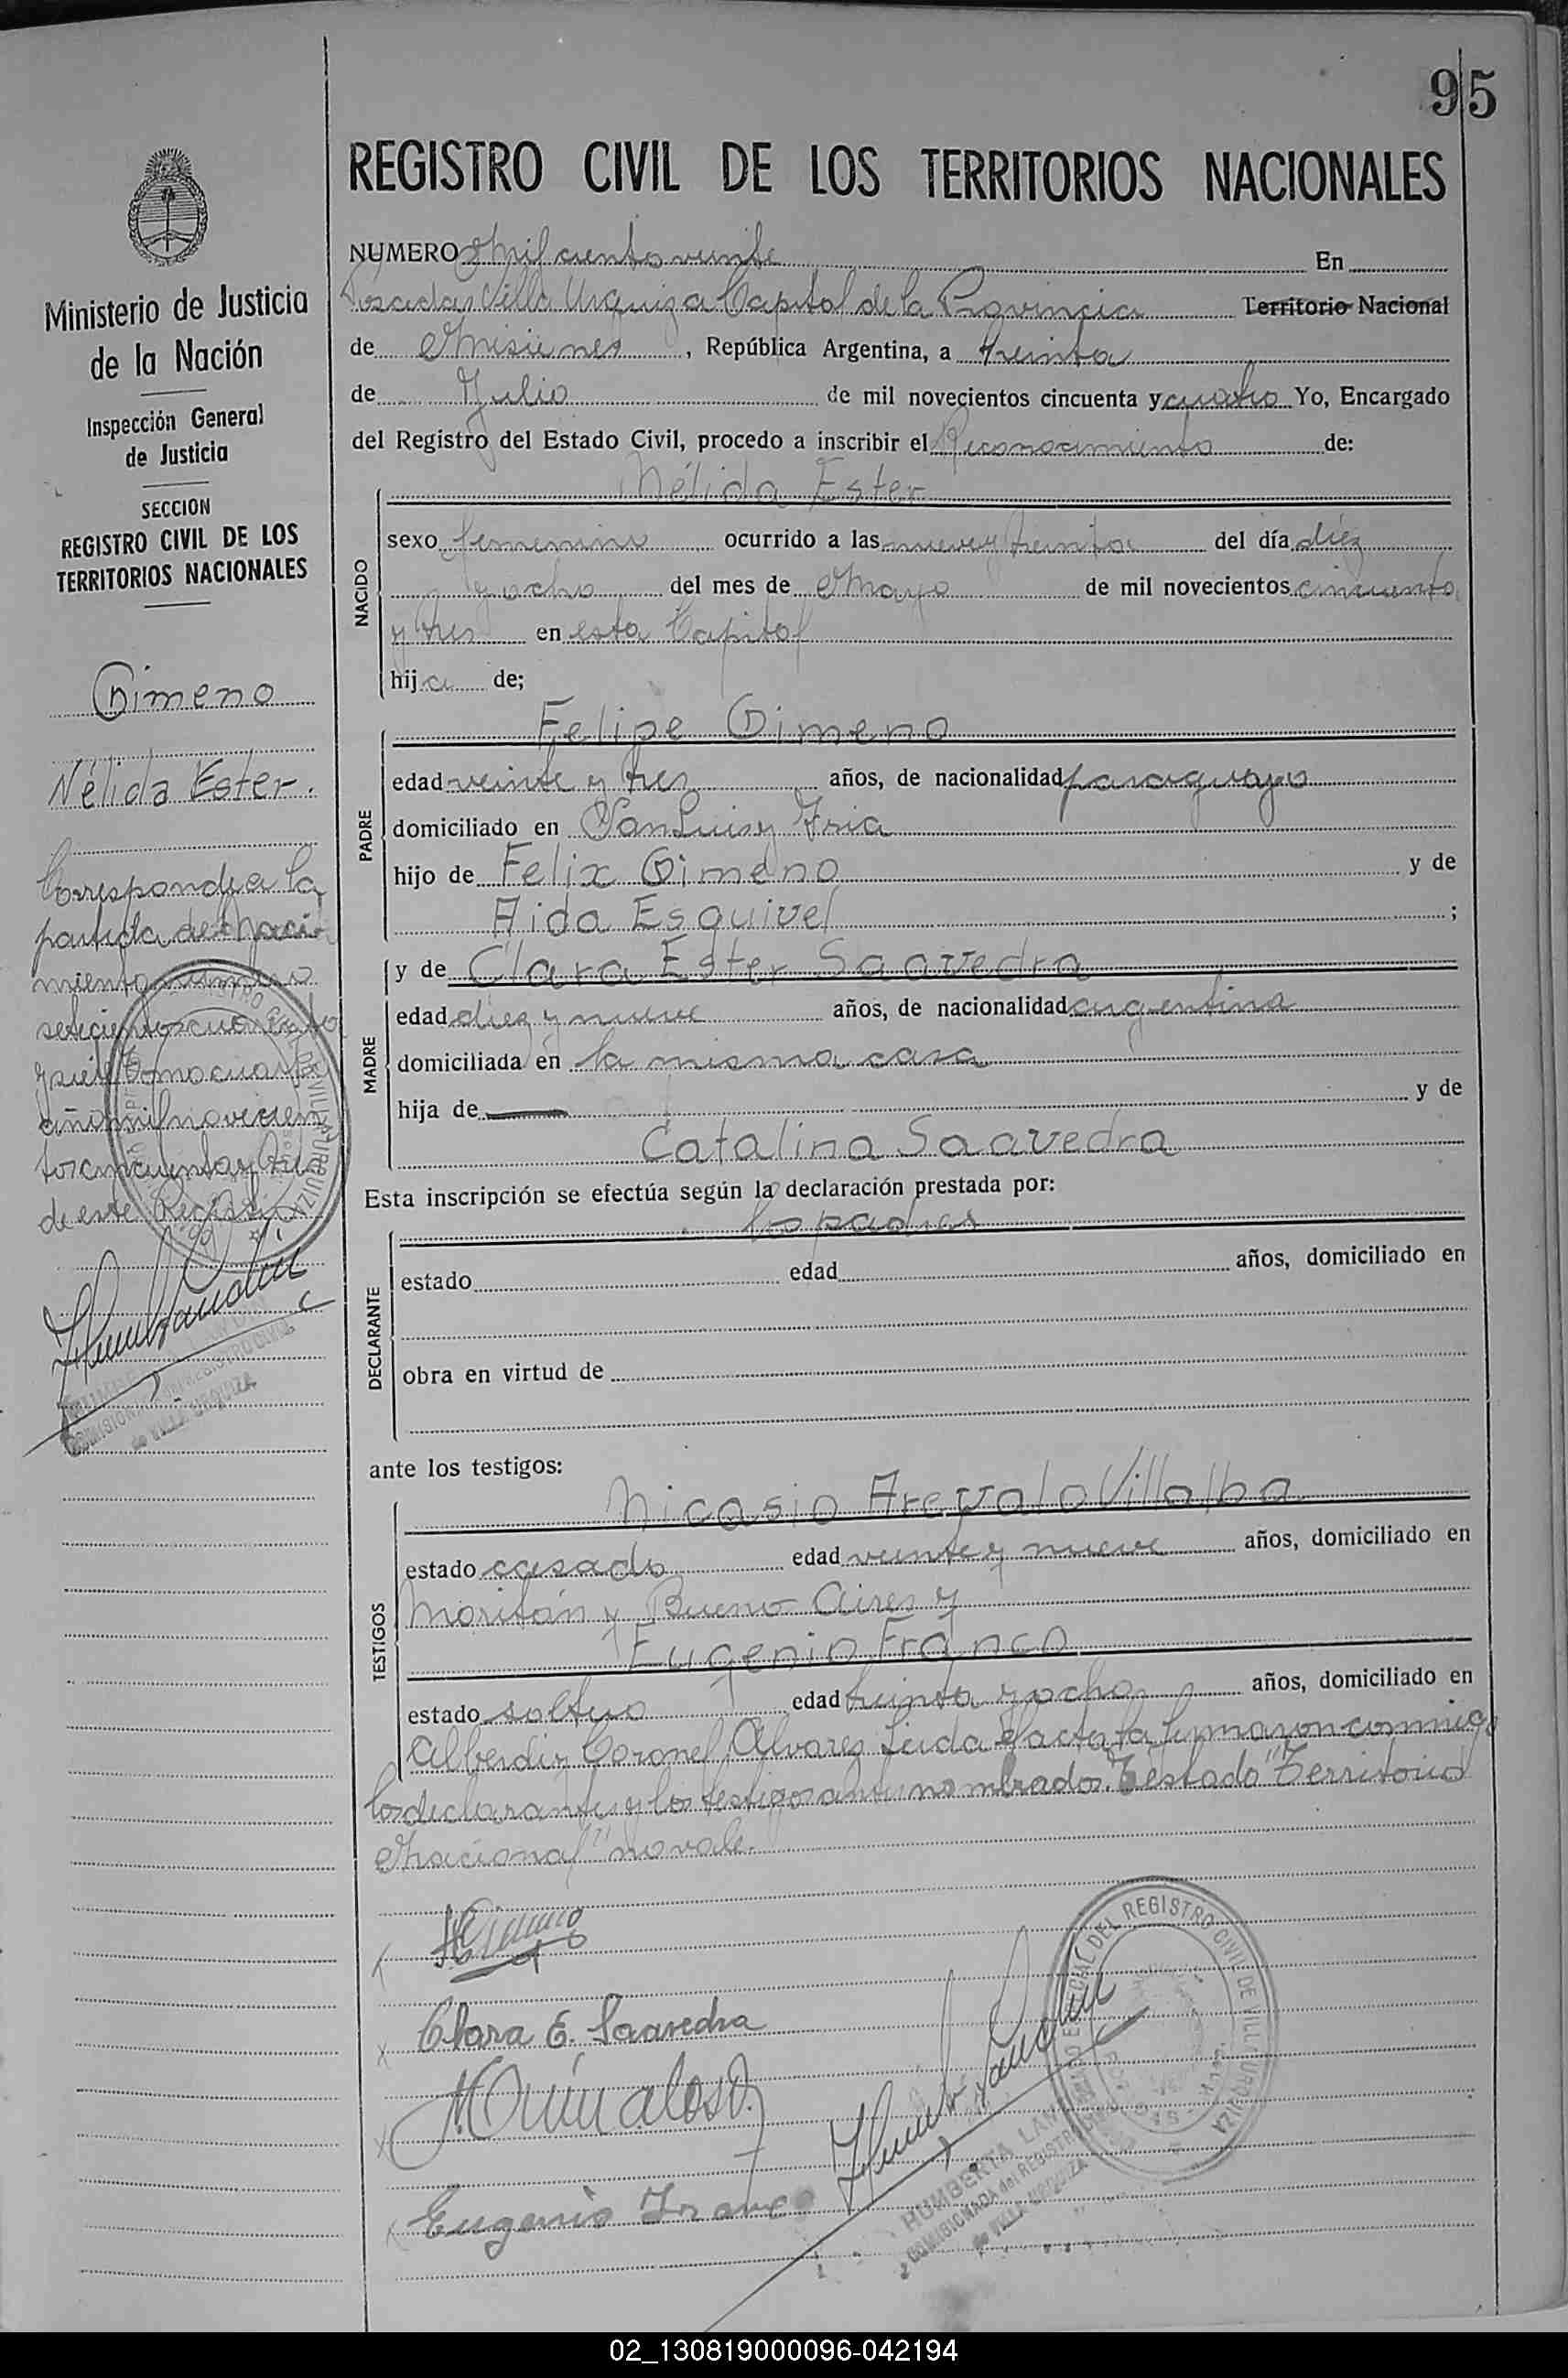 95
REGISTRO CIVIL DE LOS TERRITORIOS NACIONALES
Ministerio de Justicia
de la Nación
Inspección General
de Justicia
SECCION
REGISTRO CIVIL DE LOS
TERRITORIOS NACIONALES
Gimeno
Nélida Ester.
Corresponde a la
partida de Naci-
miento número
setecientos cuarenta
y siete tomo cuarto
año mil novecien
tos cincuenta y tres
de este Registro
NUMERO Mil ciento veinte En
Posadas Villa Urquiza Capital de la Provincia Territorio Nacional
de Misiones, República Argentina, a treinta
de Julio de mil novecientos cincuenta y cuatro Yo, Encargado
del Registro del Estado Civil, procedo a inscribir el Reconocimiento de:
NACIDO
Nélida Ester
sexo femenino ocurrido a las nueve y treinta del día diez
y ocho del mes de Mayo de mil novecientos cincuenta
y tres en esta Capital
hija de;
PADRE
Felipe Gimeno
edad veinte y tres años, de nacionalidad paraguayo
domiciliado en San Luis y Fria
hijo de Felix Gimeno y de
Aida Esquivel ;
MADRE
y de Clara Ester Saavedra
edad diez y nueve años, de nacionalidad argentina
domiciliada en la misma casa
hija de —— y de
Catalina Saavedra
Esta inscripción se efectúa según la declaración prestada por:
los padres
DECLARANTE
estado edad años, domiciliado en
obra en virtud de
ante los testigos:
TESTIGOS
Nicasio Arevalo Villalba
estado casado edad veinte y nueve años, domiciliado en
Moritán y Bueno Aires y
Eugenio Franco
estado soltero edad treinta y ocho años, domiciliado en
Alberdi y Coronel Alvarez Leida el acta la firmaron conmigo
los declarantes y los testigos antes nombrados. Testado "Territorio
Nacional" no vale.
Clara E. Saavedra
Eugenio Franco
DEL REGISTRO CIVIL DE VILLA URQUIZA
HUMBERTA
COMISIONADA del REGISTRO CIVIL
de VILLA URQUIZA
02_130819000096-042194